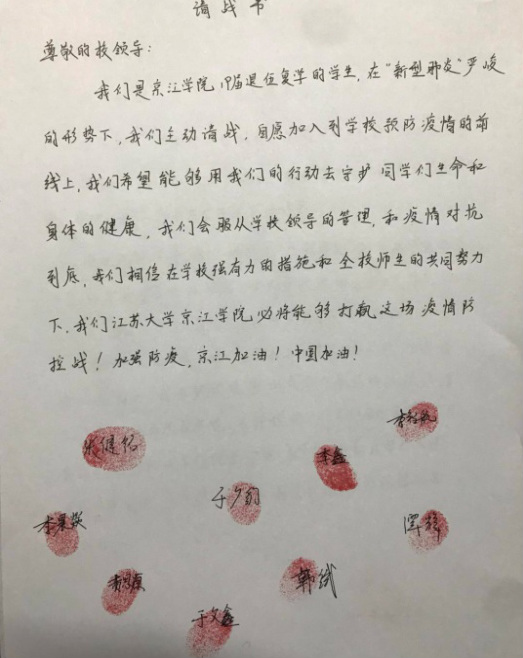 请战书
尊敬的校领导:
我们是京江学院,19届退伍复学的学生,在“新型肺炎”严峻
的形势下,我们主动请战,自愿加入到学校预防疫情的前
线上,我们希望能够用我们的行动去守护同学们生命和
身体的健康,我们会服从学校领导的管理,和疫情对抗
到底,我们相信在学校强有力的措施和全校师生的共同努力
下,我们江苏大学京江学院必将能够打赢这场疫情防
控战!加强防疫,京江加油!中国加油!
李鑫
于文鑫